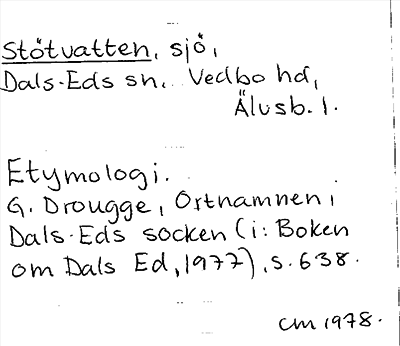 Stötvatten, sjö,
Dals-Eds sn. Vedbo hd,
Älvsb. l.
Etymologi.
G. Drougge, Ortnamnen i
Dals-Eds socken (i: Boken
om Dals Ed, 1977), s. 638.
CM 1978.